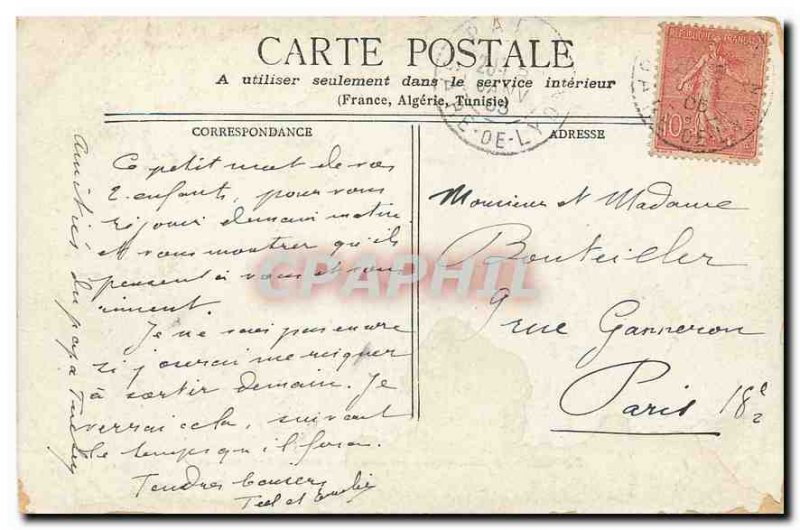 CARTE POSTALE
A utiliser seulement dans le service intérieur
(France, Algérie, Tunisie)
CORRESPONDANCE
Ce petit mot de vos
2 enfants, pour vous
réjouir demain matin
et vous montrer qu'ils
pensent à vous et vous
aiment.
Je ne sais pas encore
si j'oserai me risquer
à sortir demain. Je
verrai cela, suivant
le temps qu'il fera.
Tendres baisers
et
Amitiés du papa
ADRESSE
Monsieur et Madame
Bouteiller
9 rue Ganneron
Paris 18e
REPUBLIQUE FRANÇAISE
10c
DE-LYON
06
CPAPHIL